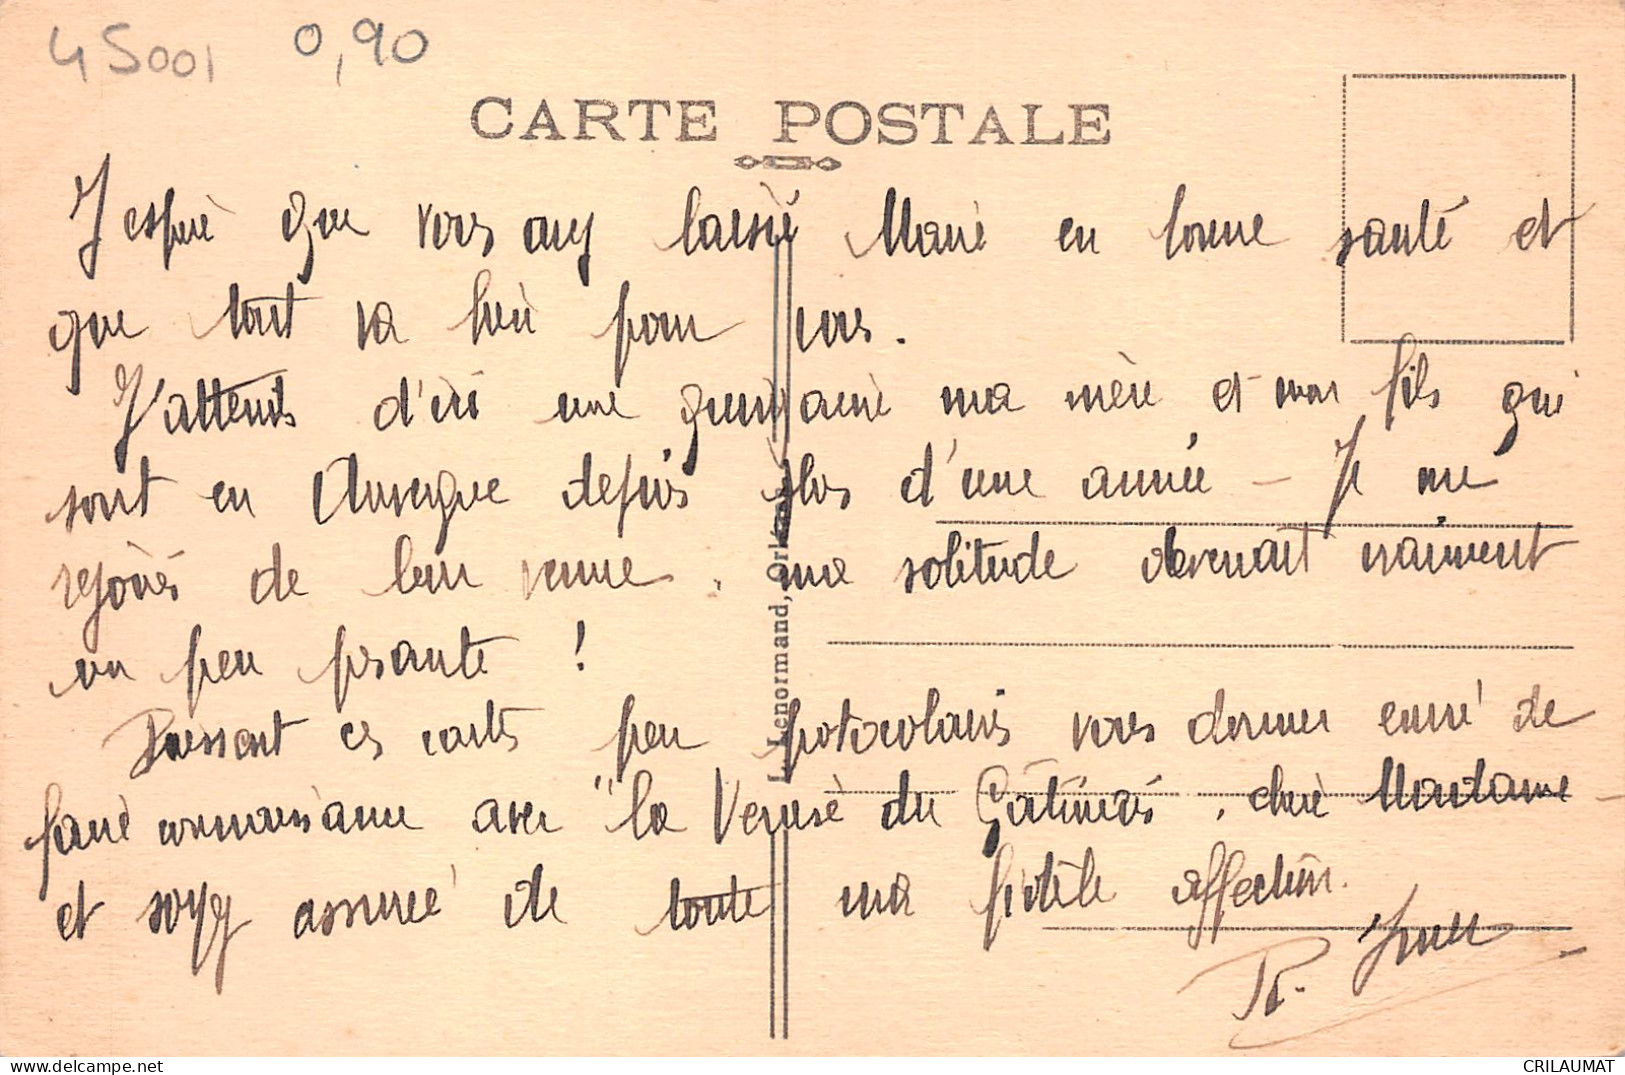 45001 0,90
CARTE POSTALE
J'espère que vous avez laissé Marie en bonne santé et
que tout va bien pour vous.
J'attends d'ici une quinzaine ma mère et mon fils qui
sont en Auvergne depuis plus d'une année - Je me
réjouis de leur venue, ma solitude devenait vraiment
un peu pesante !
Puissent ces cartes peu protocolaires vous donner envie de
faire connaissance avec "la Venise du Gâtinais, chère Madame -
et soyez assurée de toute ma fidèle affection.
R.
L. Lenormand, Orléans
CRILAUMAT